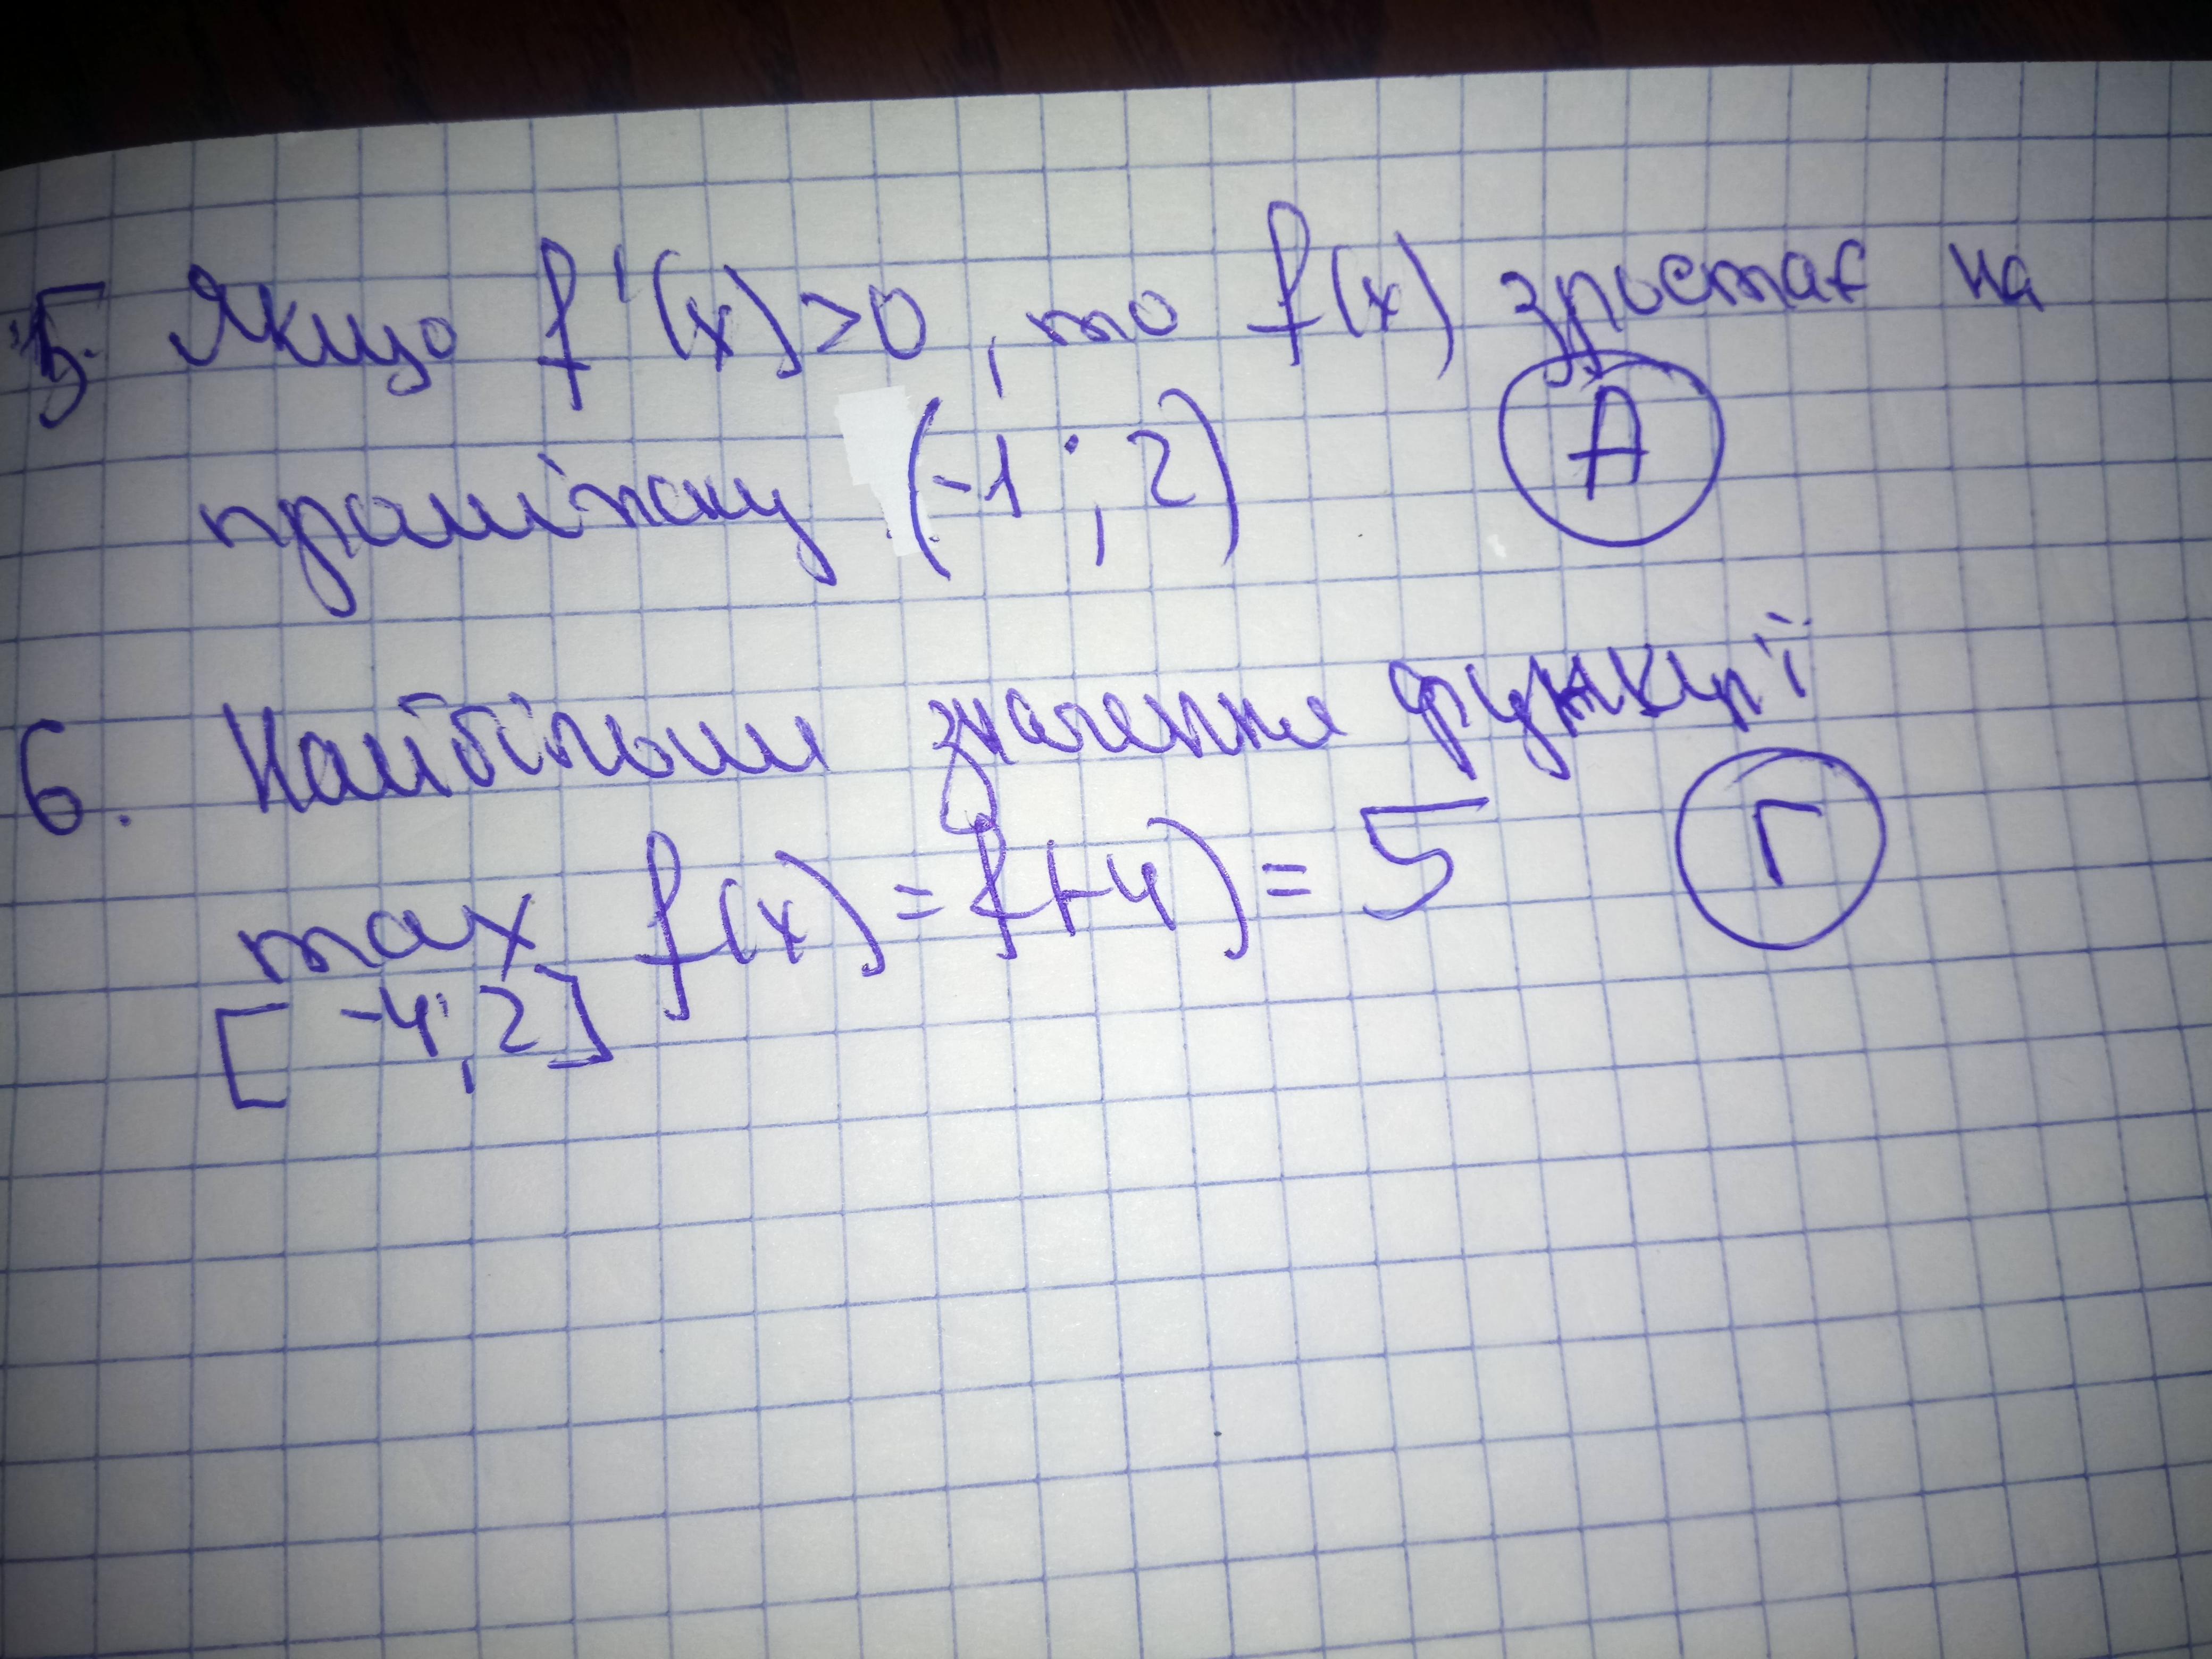 5. Якщо f'(x)>0, то f(x) зростає на
проміжку (-1; 2) А
6. Найбільш значення функції
max f(x) = f(-4) = 5 Г
[-4; 2]